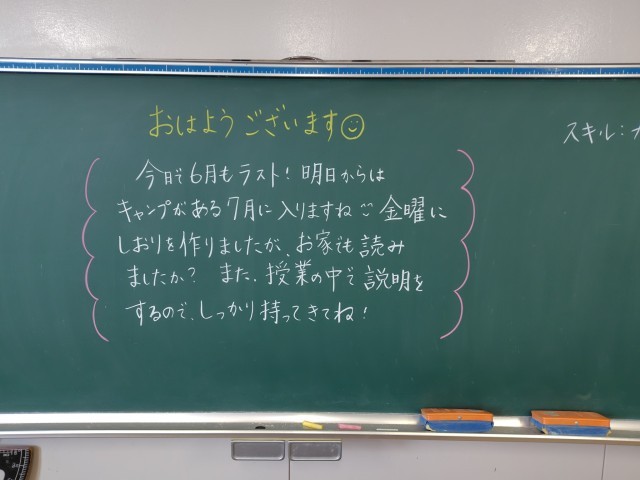 おはようございます
今日で6月もラスト!明日からは
キャンプがある7月に入りますね 金曜に
しおりを作りましたが、お家でも読み
ましたか? また、授業の中で説明を
するので、しっかり持ってきてね!
スキル: